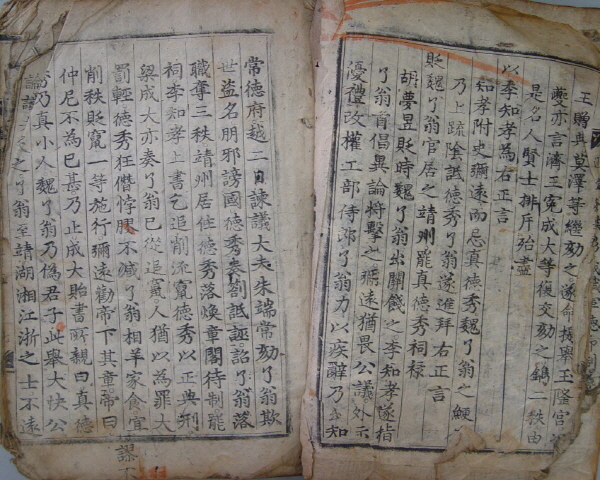 王與莫澤等繼劾之遂命提舉玉隆宮
夔亦言濟王冤成大等復交劾之鐫二秩由
是名人賢士排斥殆盡
以李知孝為右正言
知孝附史彌遠而忌真德秀魏了翁之鯁
乃上疏陰詆德秀了翁遂進拜右正言
貶魏了翁官居之靖州罷真德秀祠祿
胡夢昱貶時魏了翁出關餞之李知孝遂指
了翁首倡異論將擊之彌遠猶畏公議外示
優禮改權工部侍郎了翁力以疾辭乃知
常德府越二日諫議大夫朱端常劾了翁欺
世盜名朋邪謗國德秀奏劄詆誣詔了翁落
職奪三秩靖州居住德秀落煥章閣待制罷
祠李知孝上書乞追削流竄德秀以正典刑
梁成大亦奏了翁已從追竄人猶以為罪大
罰輕德秀狂僭悖不減了翁相羊家食宜
削秩貶竄一等施行彌遠勸帝下其章帝曰
仲尼不為已甚乃止成大貽書所親曰真德
秀乃真小人魏了翁乃偽君子此舉大快公
論之了翁至靖湖湘江浙之士不遠
謬不